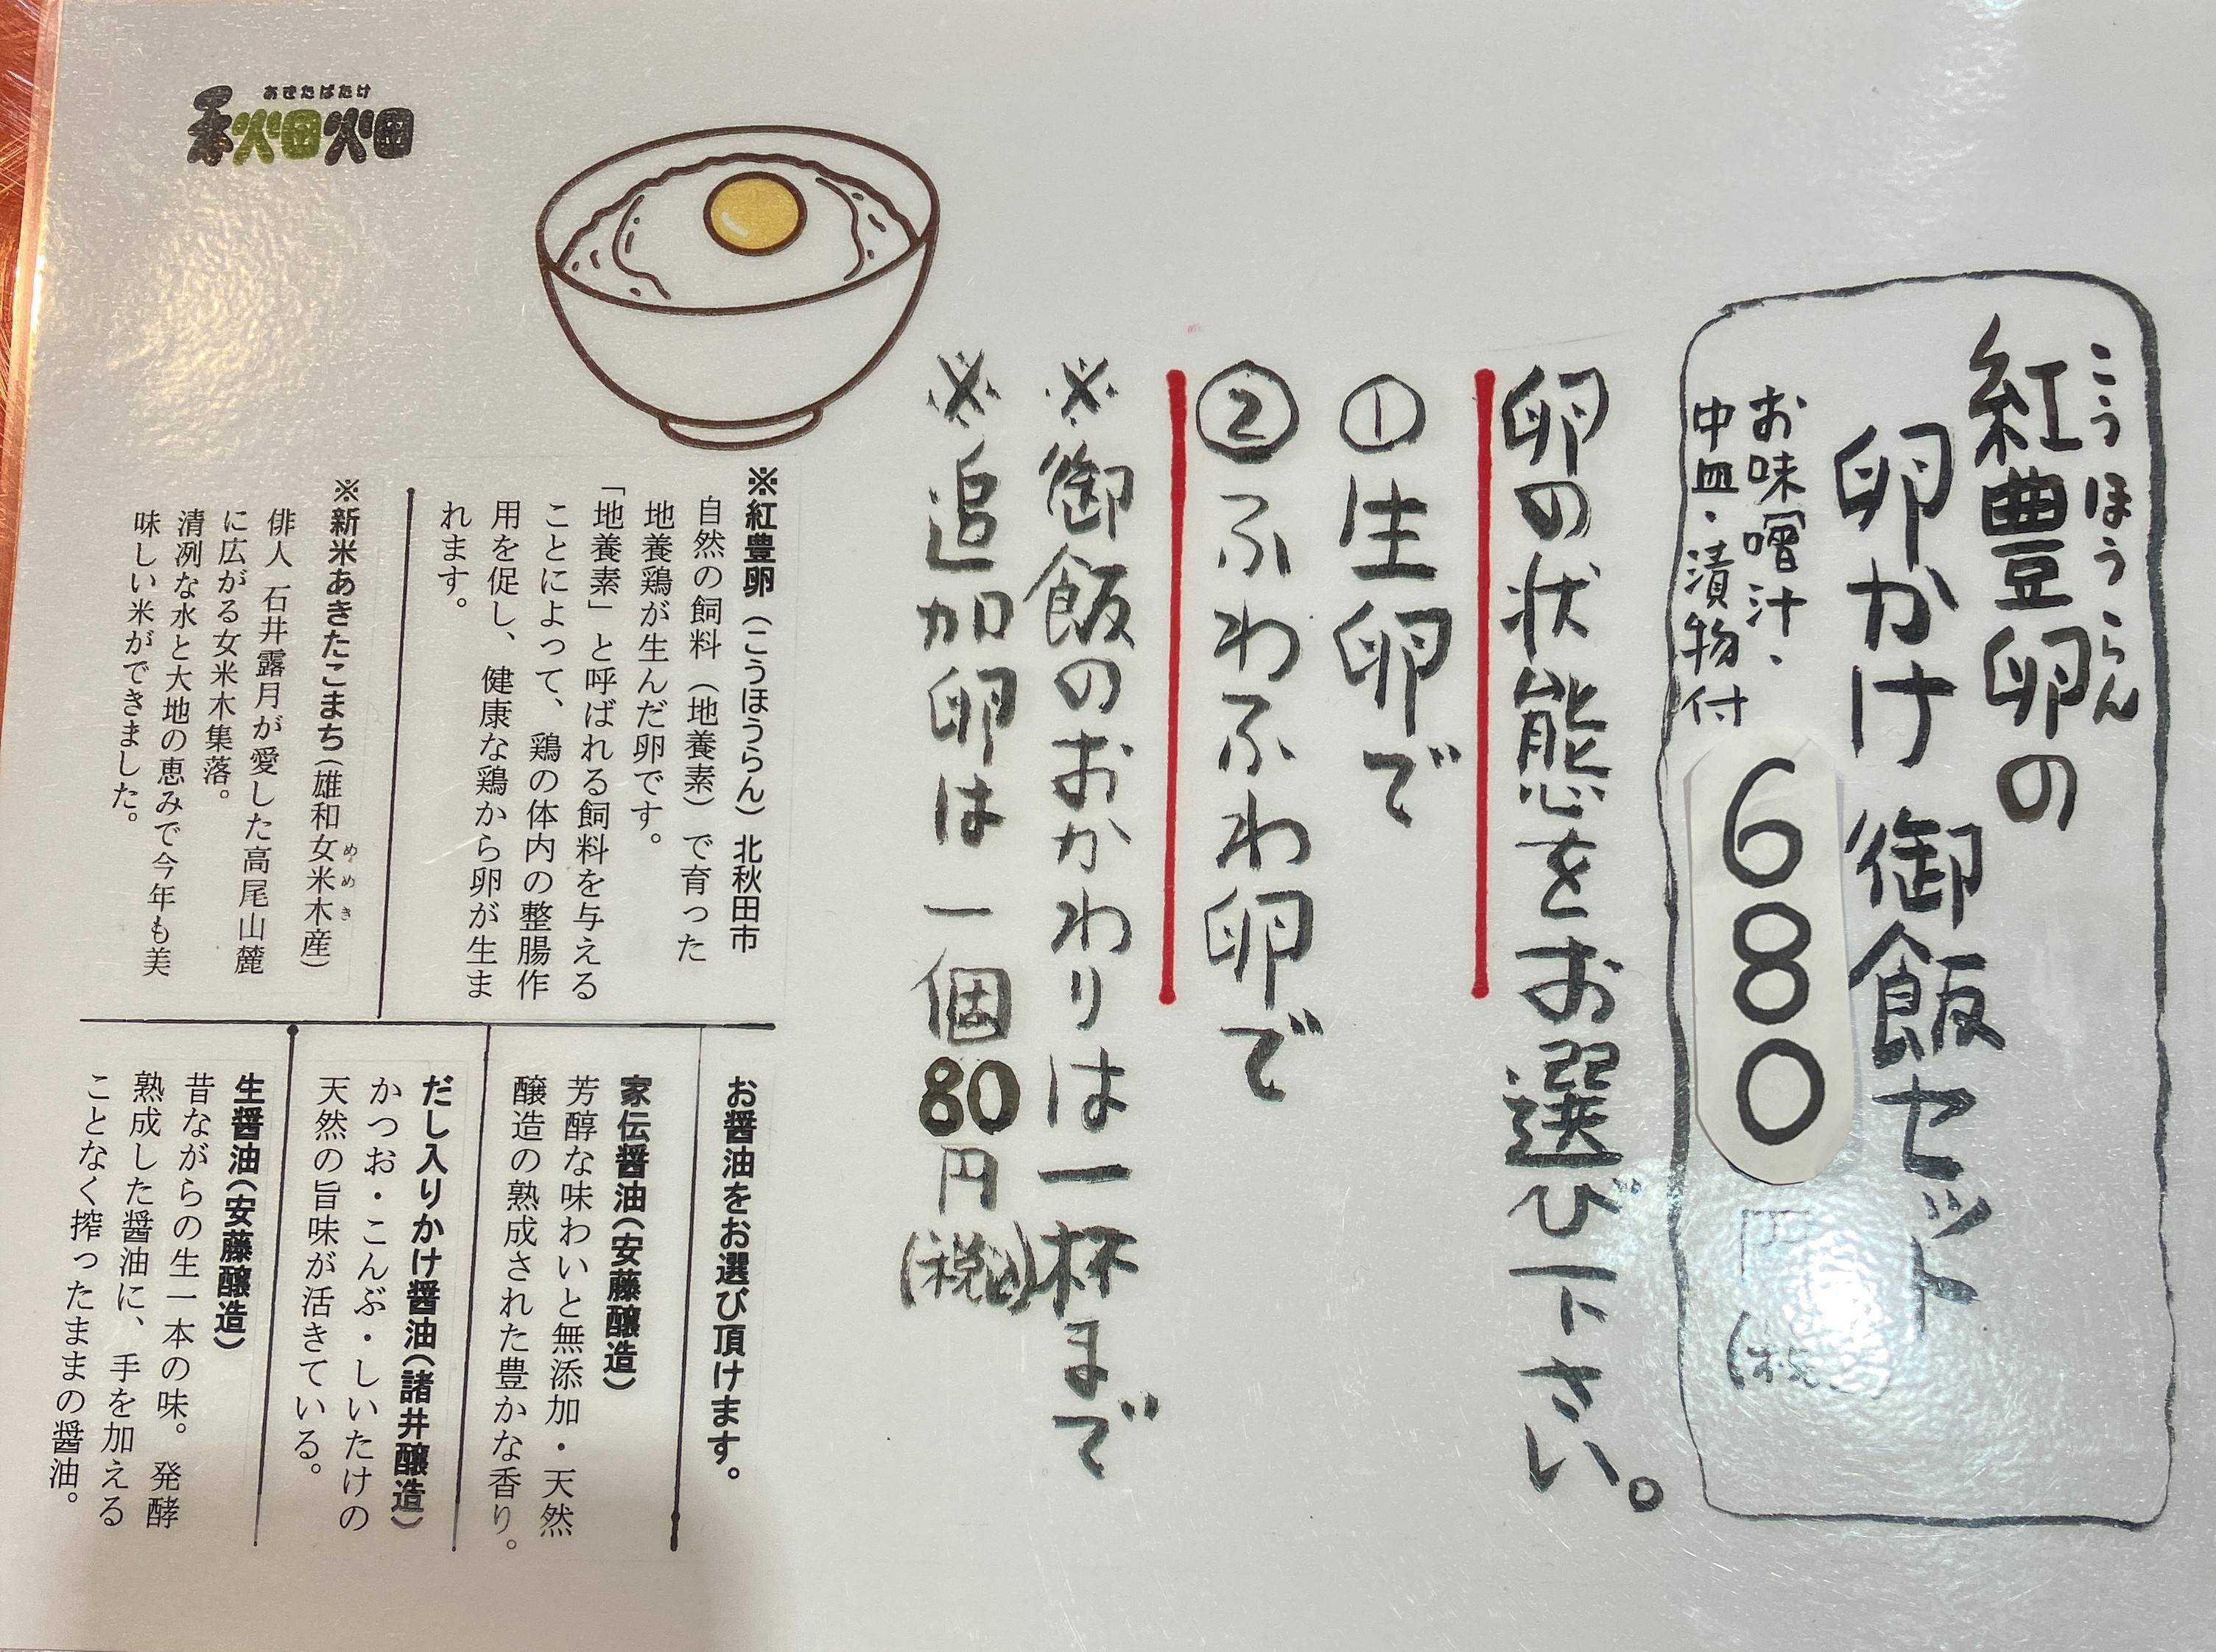 こうほうらん
紅豊卵の
卵かけ御飯セット
お味噌汁・
中皿・漬物付
680
円
卵の状態をお選び下さい。
①生卵で
②ふわふわ卵で
※御飯のおかわりは一杯まで
※追加卵は一個80円(税込)
あきたばたけ
秋田畑
※紅豊卵（こうほうらん）北秋田市
自然の飼料（地養素）で育った
地養鶏が生んだ卵です。
「地養素」と呼ばれる飼料を与える
ことによって、鶏の体内の整腸作
用を促し、健康な鶏から卵が生ま
れます。
※新米あきたこまち（雄和女米木産）
めめき
俳人 石井露月が愛した高尾山麓
に広がる女米木集落。
清冽な水と大地の恵みで今年も美
味しい米ができました。
お醤油をお選び頂けます。
家伝醤油（安藤醸造）
芳醇な味わいと無添加・天然
醸造の熟成された豊かな香り。
だし入りかけ醤油（諸井醸造）
かつお・こんぶ・しいたけの
天然の旨味が活きている。
生醤油（安藤醸造）
昔ながらの生一本の味。発酵
熟成した醤油に、手を加える
ことなく搾ったままの醤油。